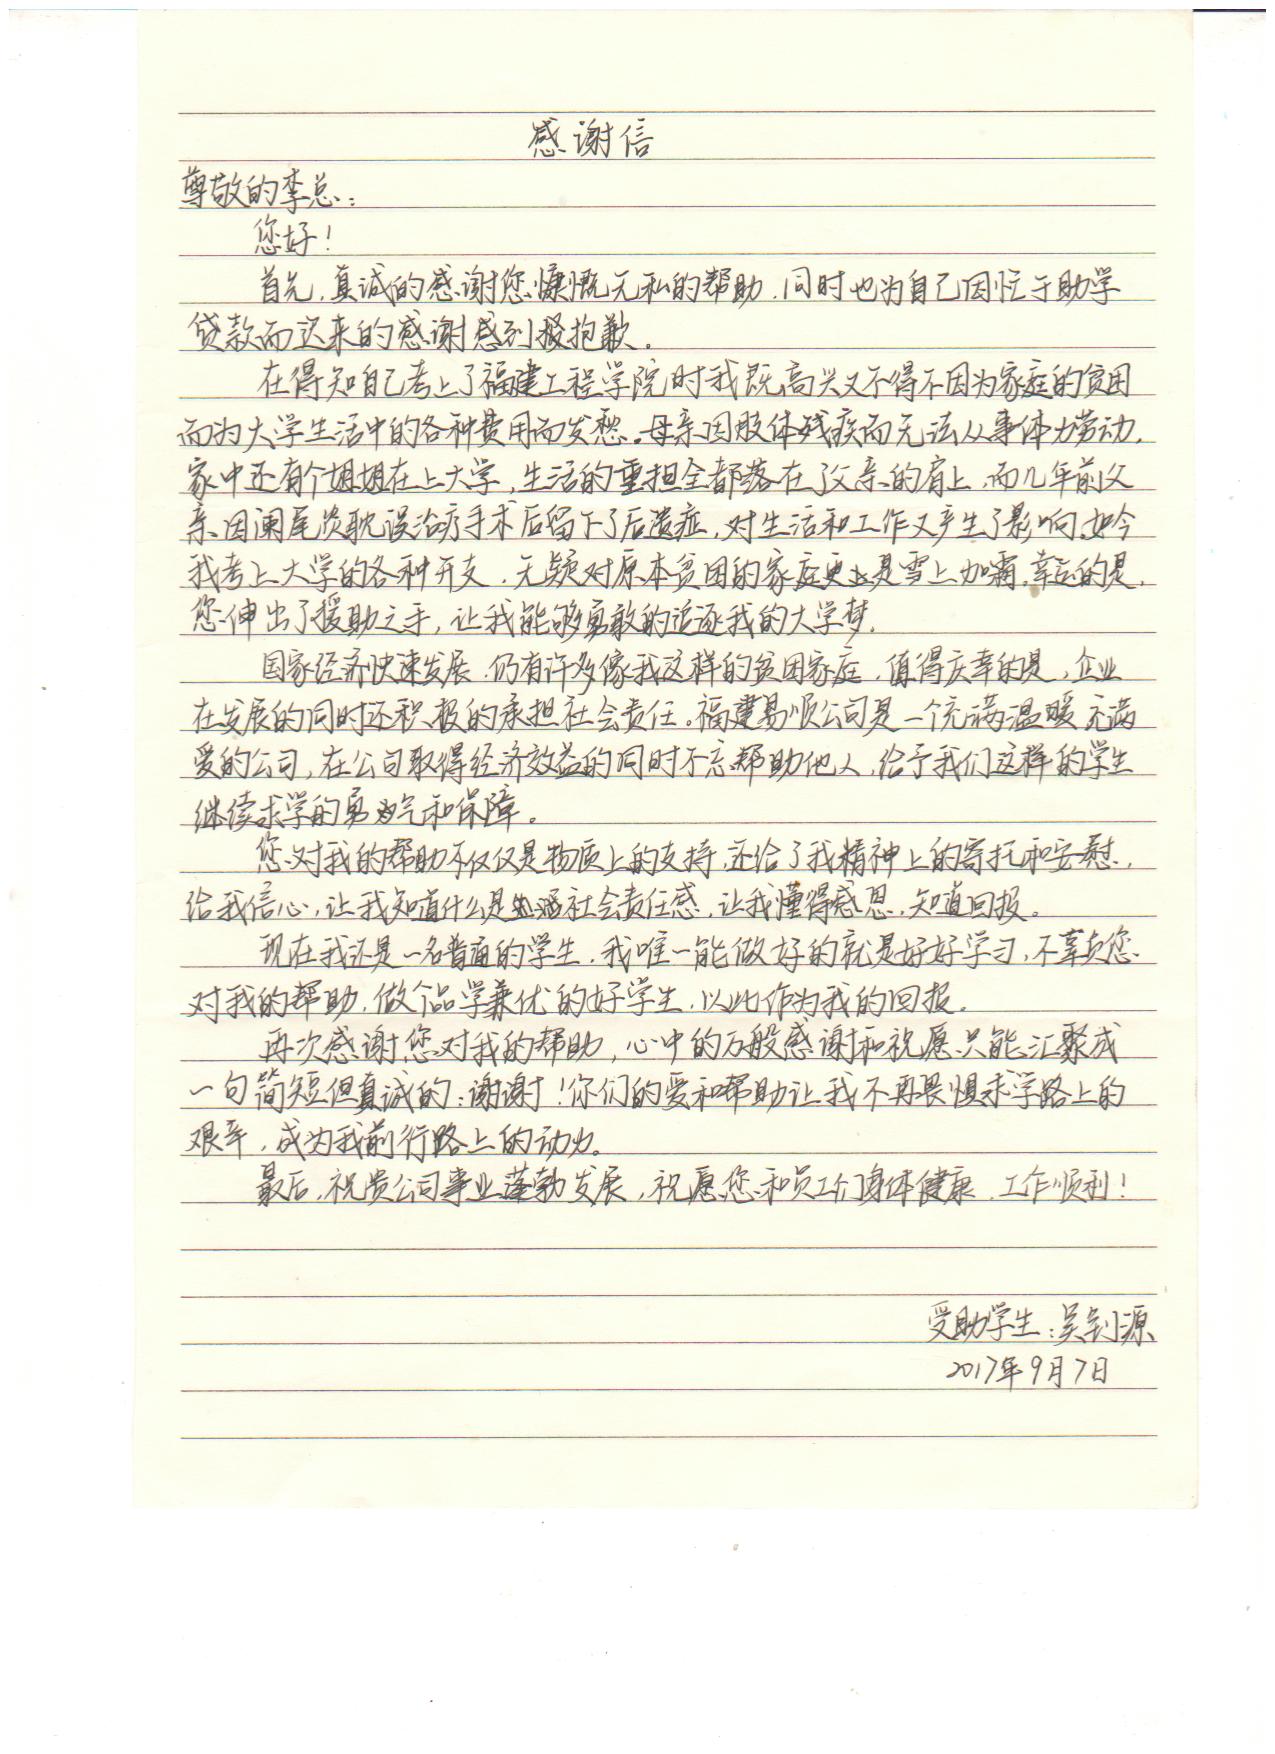 感谢信
尊敬的李总：
您好！
首先，真诚的感谢您慷慨无私的帮助，同时也为自己因忙于助学
贷款而迟来的感谢感到报抱歉。
在得知自己考上了福建工程学院时我既高兴又不得不因为家庭的贫困
而为大学生活中的各种费用而发愁。母亲因肢体残疾而无法从事体力劳动，
家中还有个姐姐在上大学，生活的重担全都落在了父亲的肩上，而几年前父
亲因阑尾炎耽误治疗手术后留下了后遗症，对生活和工作又产生了影响，如今
我考上大学的各种开支，无疑对原本贫困的家庭更是雪上加霜，幸运的是，
您伸出了援助之手，让我能够勇敢的追逐我的大学梦。
国家经济快速发展，仍有许多像我这样的贫困家庭，值得庆幸的是，企业
在发展的同时还积极的承担社会责任。福建易顺公司是一个充满温暖充满
爱的公司，在公司取得经济效益的同时不忘帮助他人，给予我们这样的学生
继续求学的勇气和保障。
您对我的帮助不仅仅是物质上的支持，还给了我精神上的寄托和安慰，
给我信心，让我知道什么是社会责任感，让我懂得感恩，知道回报。
现在我还是一名普通的学生，我唯一能做好的就是好好学习，不辜负您
对我的帮助，做个品学兼优的好学生，以此作为我的回报。
再次感谢您对我的帮助，心中的万般感谢和祝愿只能汇聚成
一句简短但真诚的：谢谢！你们的爱和帮助让我不再畏惧求学路上的
艰辛，成为我前行路上的动力。
最后，祝贵公司事业蓬勃发展，祝愿您和员工们身体健康，工作顺利！
受助学生：吴钊源
2017年9月7日